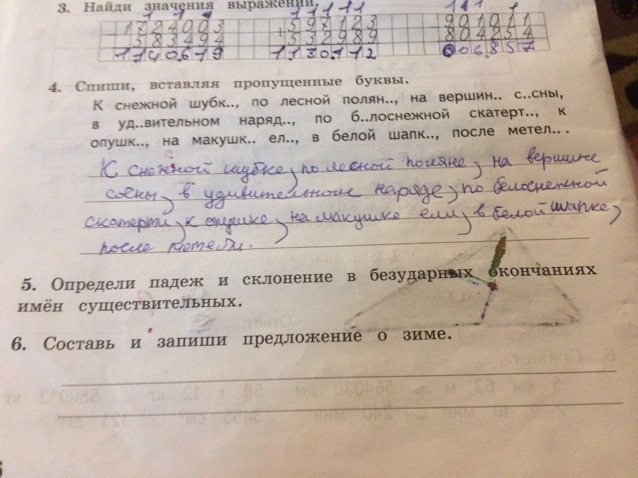 3. Найди значения выражений.
4. Спиши, вставляя пропущенные буквы.
К снежной шубк.., по лесной полян.., на вершин.. с..сны,
в уд..вительном наряд.., по б..лоснежной скатерт.., к
опушк.., на макушк.. ел.., в белой шапк.., после метел.. .
К снежной шубке, по лесной поляне, на вершине
сосны, в удивительном наряде, по белоснежной
скатерти, к опушке, на макушке ели, в белой шапке,
после метели.
5. Определи падеж и склонение в безударных окончаниях
имён существительных.
6. Составь и запиши предложение о зиме.